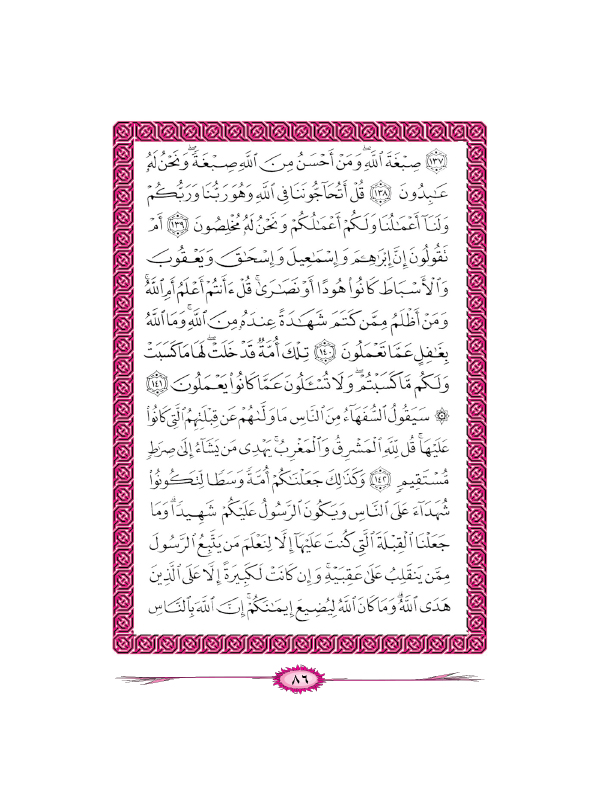 ﴿١٣٧﴾ صِبْغَةَ ٱللَّهِ ۖ وَمَنْ أَحْسَنُ مِنَ ٱللَّهِ صِبْغَةً ۖ وَنَحْنُ لَهُۥ
عَٰبِدُونَ ﴿١٣٨﴾ قُلْ أَتُحَآجُّونَنَا فِى ٱللَّهِ وَهُوَ رَبُّنَا وَرَبُّكُمْ
وَلَنَآ أَعْمَٰلُنَا وَلَكُمْ أَعْمَٰلُكُمْ وَنَحْنُ لَهُۥ مُخْلِصُونَ ﴿١٣٩﴾ أَمْ
تَقُولُونَ إِنَّ إِبْرَٰهِۦمَ وَإِسْمَٰعِيلَ وَإِسْحَٰقَ وَيَعْقُوبَ
وَٱلْأَسْبَاطَ كَانُوا۟ هُودًا أَوْ نَصَٰرَىٰ ۗ قُلْ ءَأَنتُمْ أَعْلَمُ أَمِ ٱللَّهُ ۗ
وَمَنْ أَظْلَمُ مِمَّن كَتَمَ شَهَٰدَةً عِندَهُۥ مِنَ ٱللَّهِ ۗ وَمَا ٱللَّهُ
بِغَٰفِلٍ عَمَّا تَعْمَلُونَ ﴿١٤٠﴾ تِلْكَ أُمَّةٌ قَدْ خَلَتْ ۖ لَهَا مَا كَسَبَتْ
وَلَكُم مَّا كَسَبْتُمْ ۖ وَلَا تُسْـَٔلُونَ عَمَّا كَانُوا۟ يَعْمَلُونَ ﴿١٤١﴾
۞ سَيَقُولُ ٱلسُّفَهَآءُ مِنَ ٱلنَّاسِ مَا وَلَّىٰهُمْ عَن قِبْلَتِهِمُ ٱلَّتِى كَانُوا۟
عَلَيْهَا ۚ قُل لِّلَّهِ ٱلْمَشْرِقُ وَٱلْمَغْرِبُ ۚ يَهْدِى مَن يَشَآءُ إِلَىٰ صِرَٰطٍ
مُّسْتَقِيمٍ ﴿١٤٢﴾ وَكَذَٰلِكَ جَعَلْنَٰكُمْ أُمَّةً وَسَطًا لِّتَكُونُوا۟
شُهَدَآءَ عَلَى ٱلنَّاسِ وَيَكُونَ ٱلرَّسُولُ عَلَيْكُمْ شَهِيدًا ۗ وَمَا
جَعَلْنَا ٱلْقِبْلَةَ ٱلَّتِى كُنتَ عَلَيْهَآ إِلَّا لِنَعْلَمَ مَن يَتَّبِعُ ٱلرَّسُولَ
مِمَّن يَنقَلِبُ عَلَىٰ عَقِبَيْهِ ۚ وَإِن كَانَتْ لَكَبِيرَةً إِلَّا عَلَى ٱلَّذِينَ
هَدَى ٱللَّهُ ۗ وَمَا كَانَ ٱللَّهُ لِيُضِيعَ إِيمَٰنَكُمْ ۚ إِنَّ ٱللَّهَ بِٱلنَّاسِ
٨٦